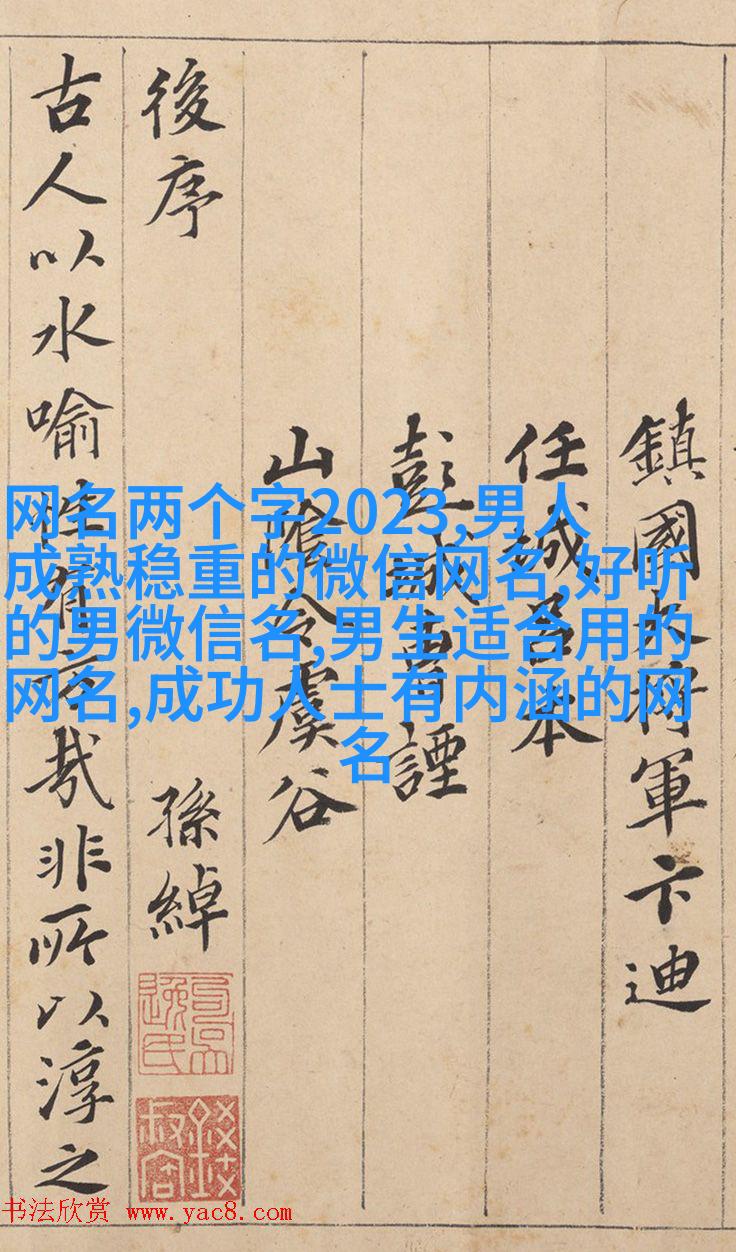 网名两个字2023,男人
成熟稳重的微信网名,好听
的男微信名,男生适合用的
网名,成功人士有内涵的网
名
鎮國大将軍卞迪
任城吕本
彭城曹諲
山陰令虞谷
後序 孫綽
古人以水喻性有旨哉非所以淳之
书法欣赏 www.yac8.com